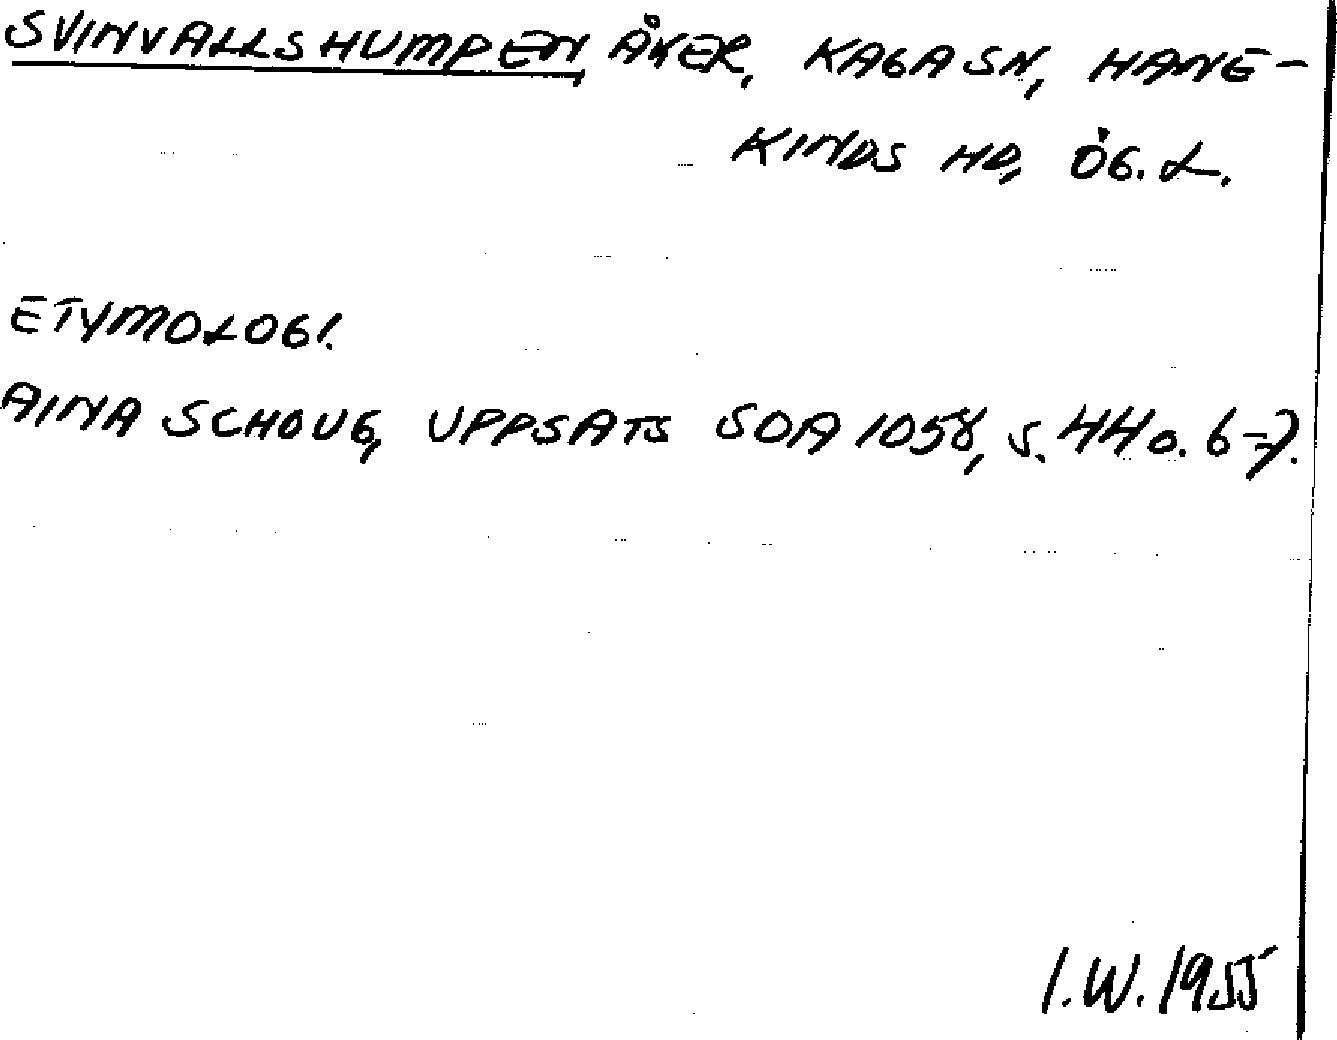 SVINVALLSHUMPEN ÅKER, KAGA SN, HANE-
KINDS HD, ÖG. L.
ETYMOLOGI.
AINA SCHOUG, UPPSATS SOA 1058, S. 44 o. 67.
I.W. 1955